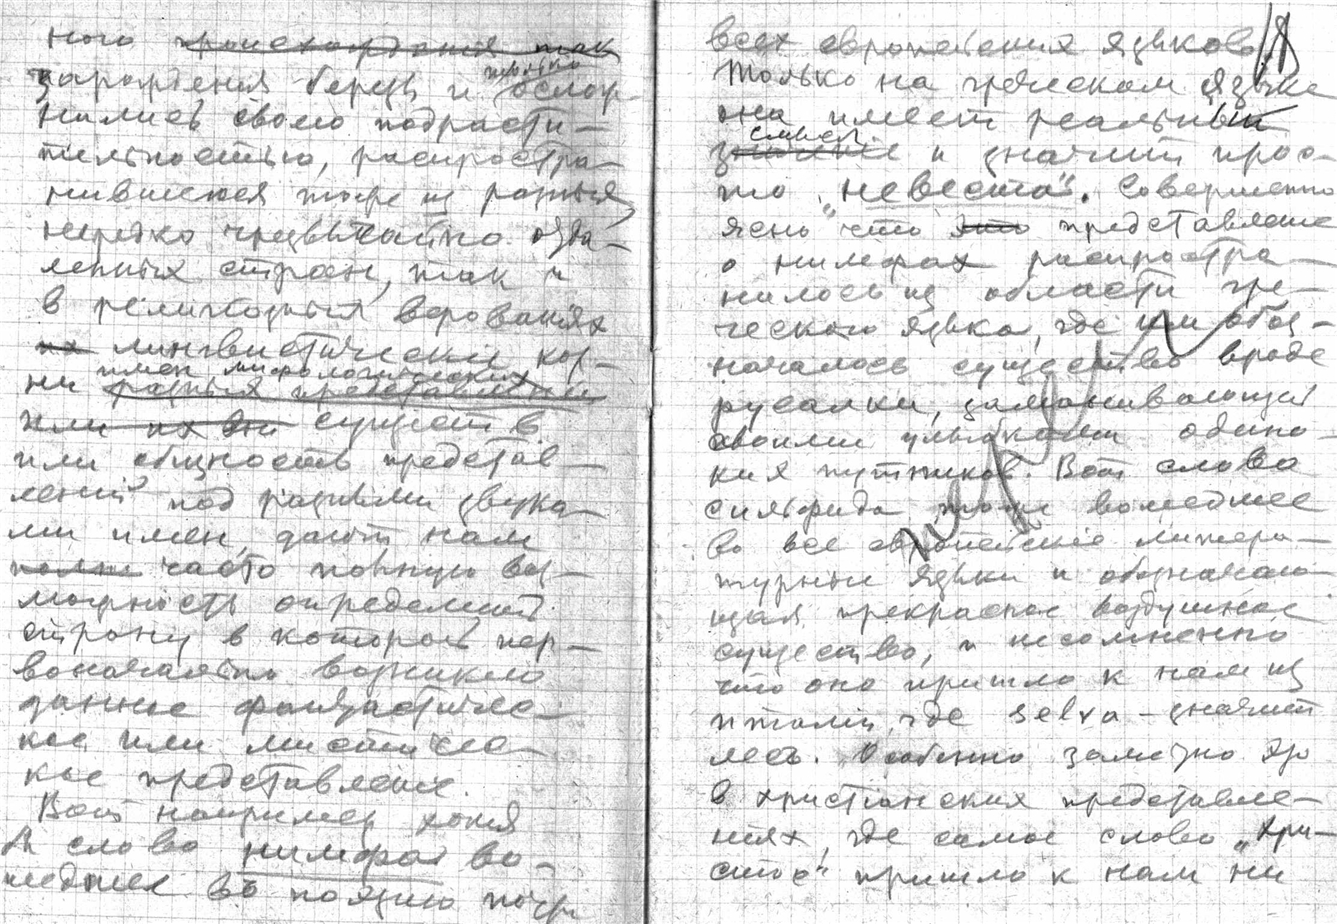 ного происхождения так
зарождения берущ и только ослож
нились своею подрасти-
тельностью, распростра-
нившеюся тоже из разных
нередко чрезвычайно отда-
ленных стран, так и
в религиозных верованиях
их лингвистические кор-
имен мифологических
ни разных представлений
или их они существ
или общность представ-
лений под разными звука-
ми имен, дают нам
полны часто полную воз-
можность определить
страну в которой пер-
воначально возникло
данное фантастичес-
кое или мистичес-
кое представление.
Вот например хотя
А слово нимфа во-
шедшее в поэзию почти
всех европейских языков 18
Только на греческом языке
она имеет реальный
смысл
значение и значит прос-
то „невеста". Совершенно
ясно что это представление
о нимфах распростра-
нилось из области гре-
ческого языка, где им обоз-
началось существо вроде
русалки, заманивающей
своими улыбками одино-
ких путников. Вот слово
сильфида тоже вошедшее
во все европейские литера-
турные языки и обозначаю-
щая прекрасное воздушное
существо, и несомненно
что оно пришло к нам из
Италии, где selva - значит
лес. Особенно заметно это
в христианских представле-
ниях, где самое слово „Хри-
стос" пришло к нам ни